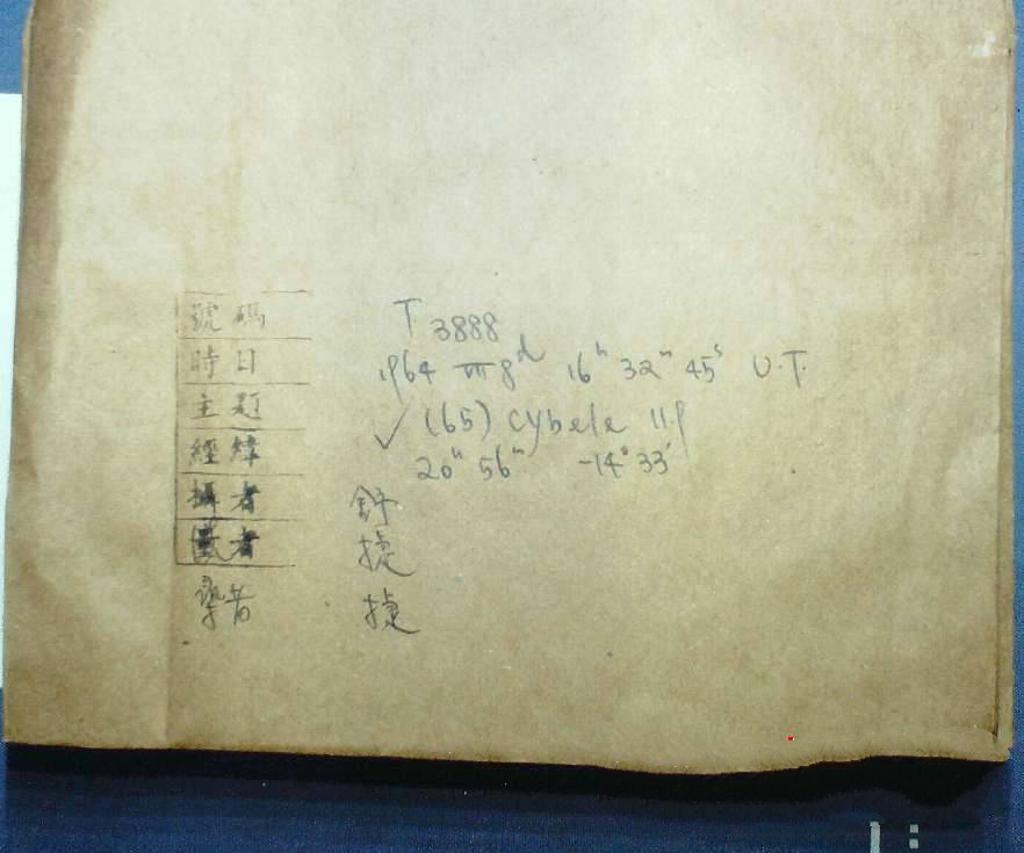 號碼 T 3888
時日 1964 VIII 8d 16h 32m 45s U.T.
主題 ✓ (65) Cybele 119
經緯 20h 56m -14°33'
攝者 舒
者 捷
者 捷